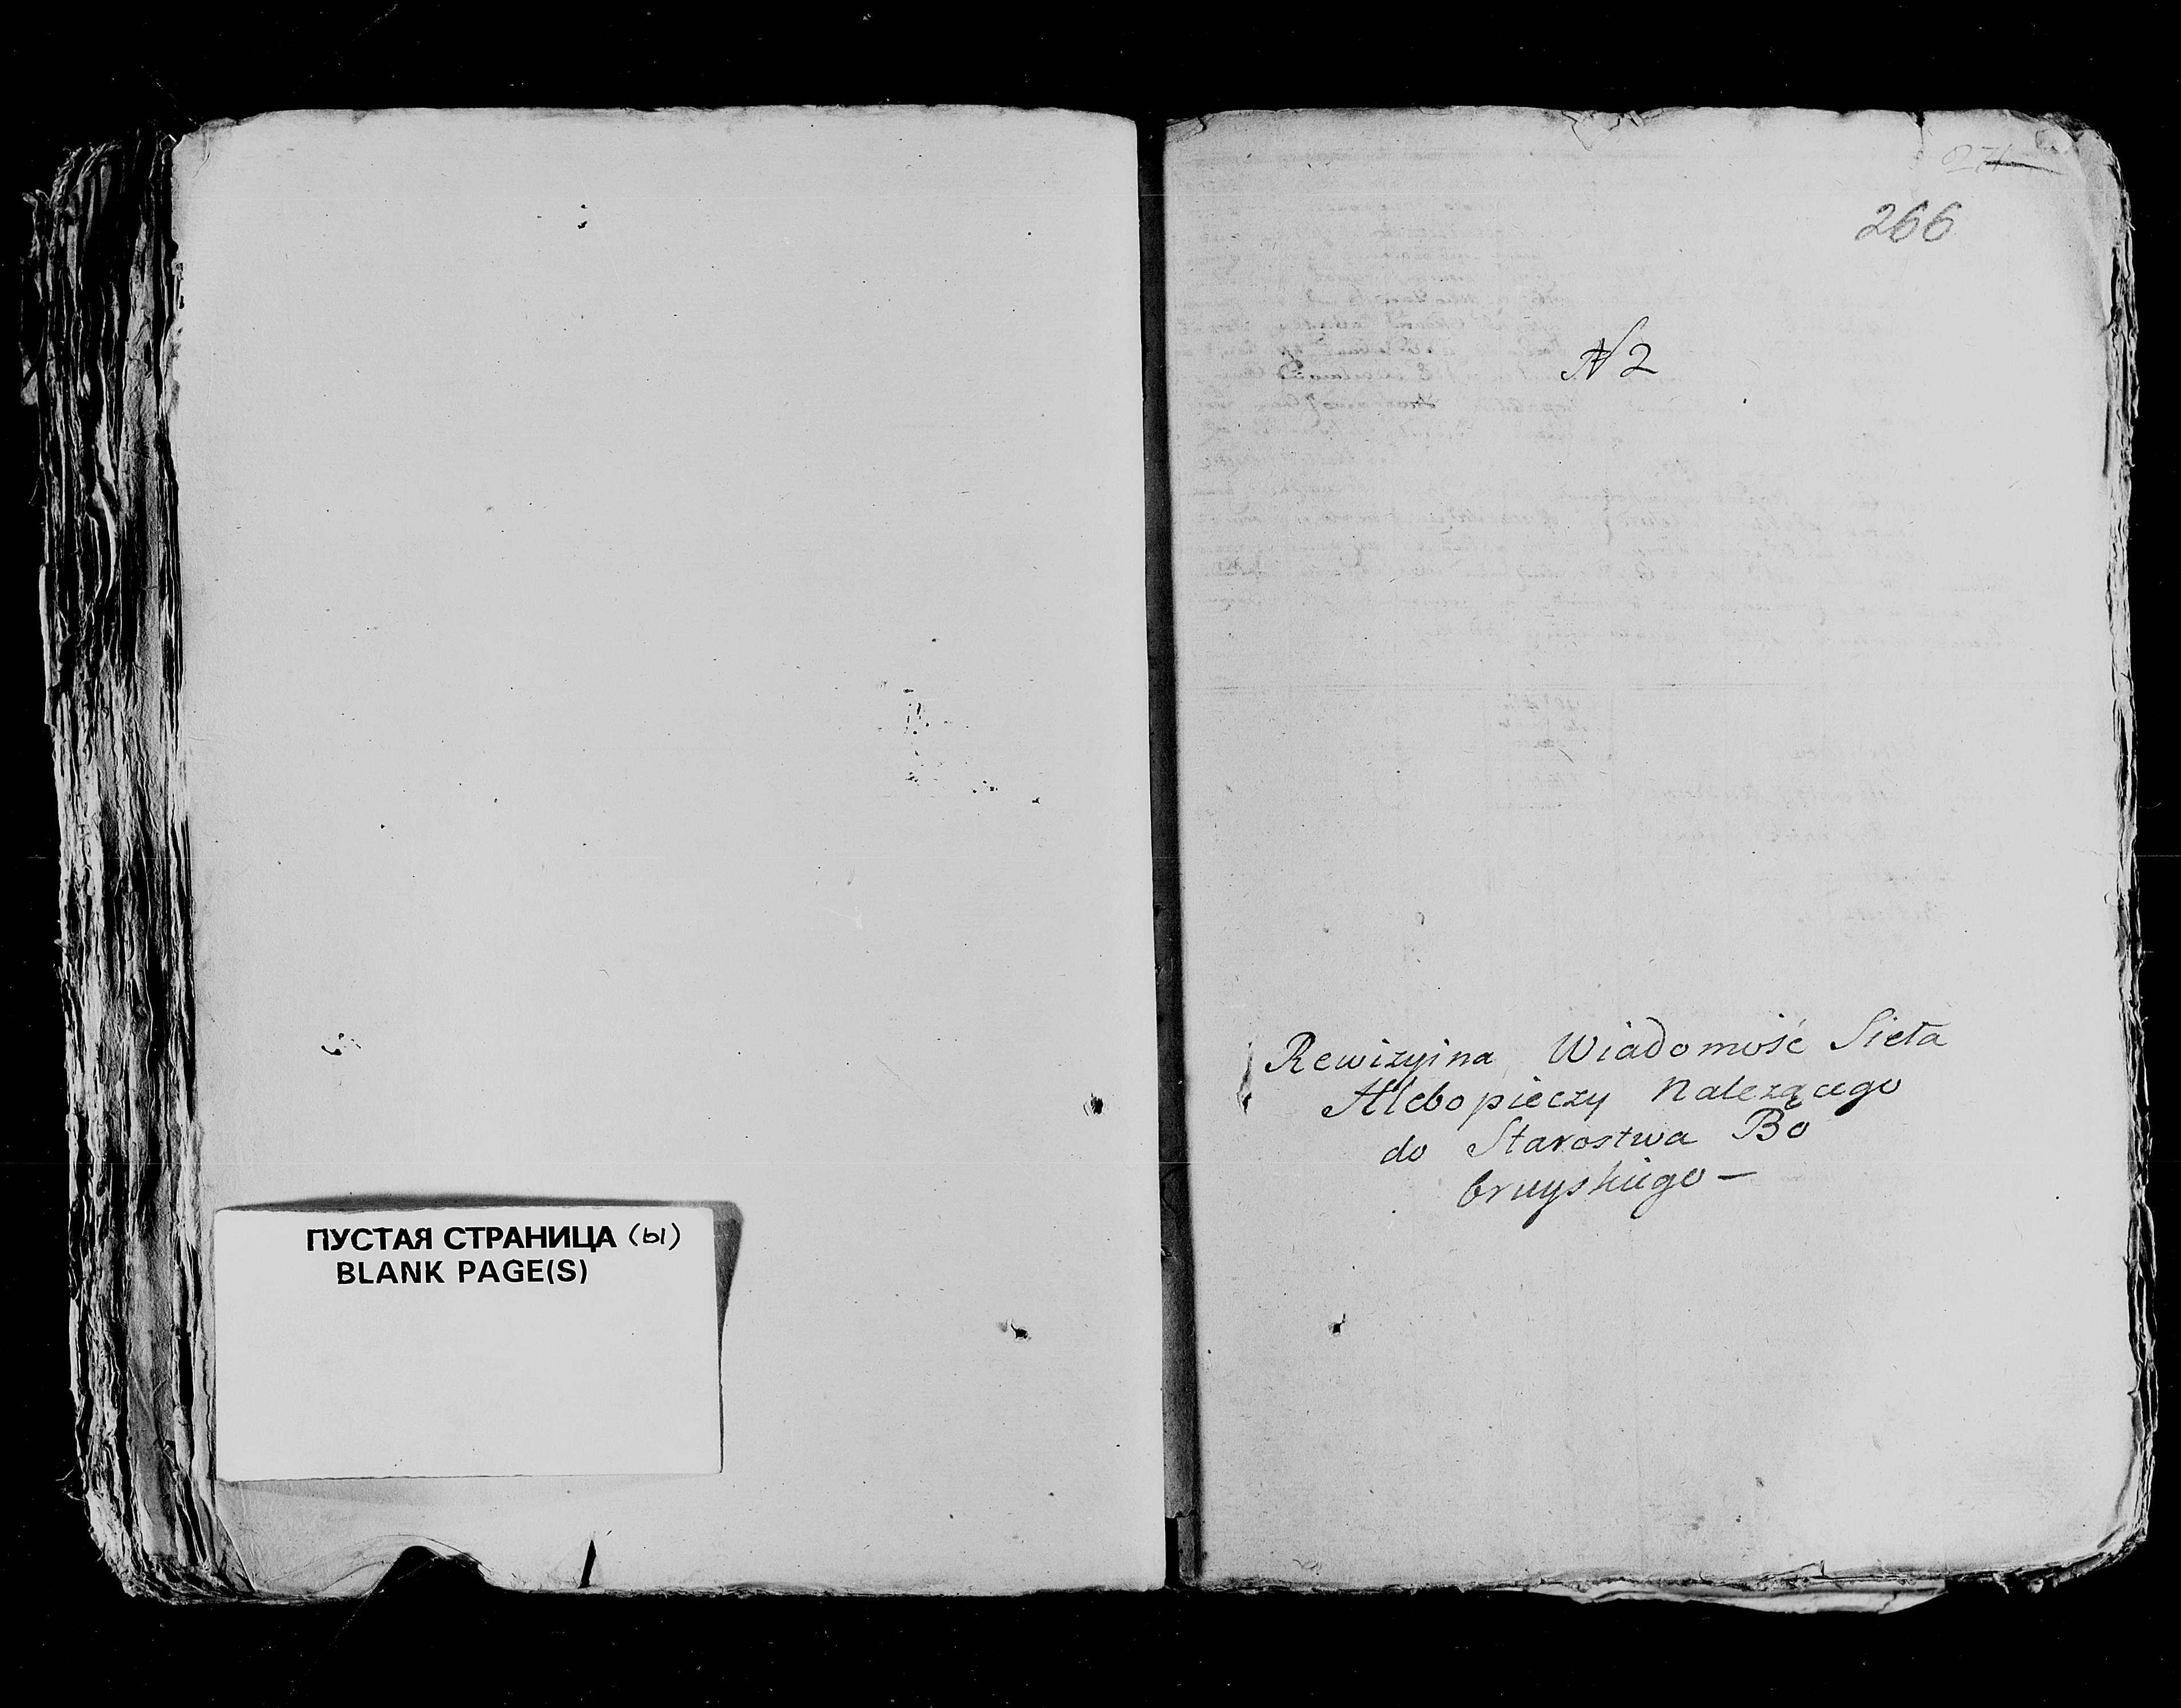 ПУСТАЯ СТРАНИЦА (ы)
BLANK PAGE(S)
266
N 2
Rewizyina Wiadomość Sieła
Hlebopieczy Nalezącego
do Starostwa Bo
bruyskiego —